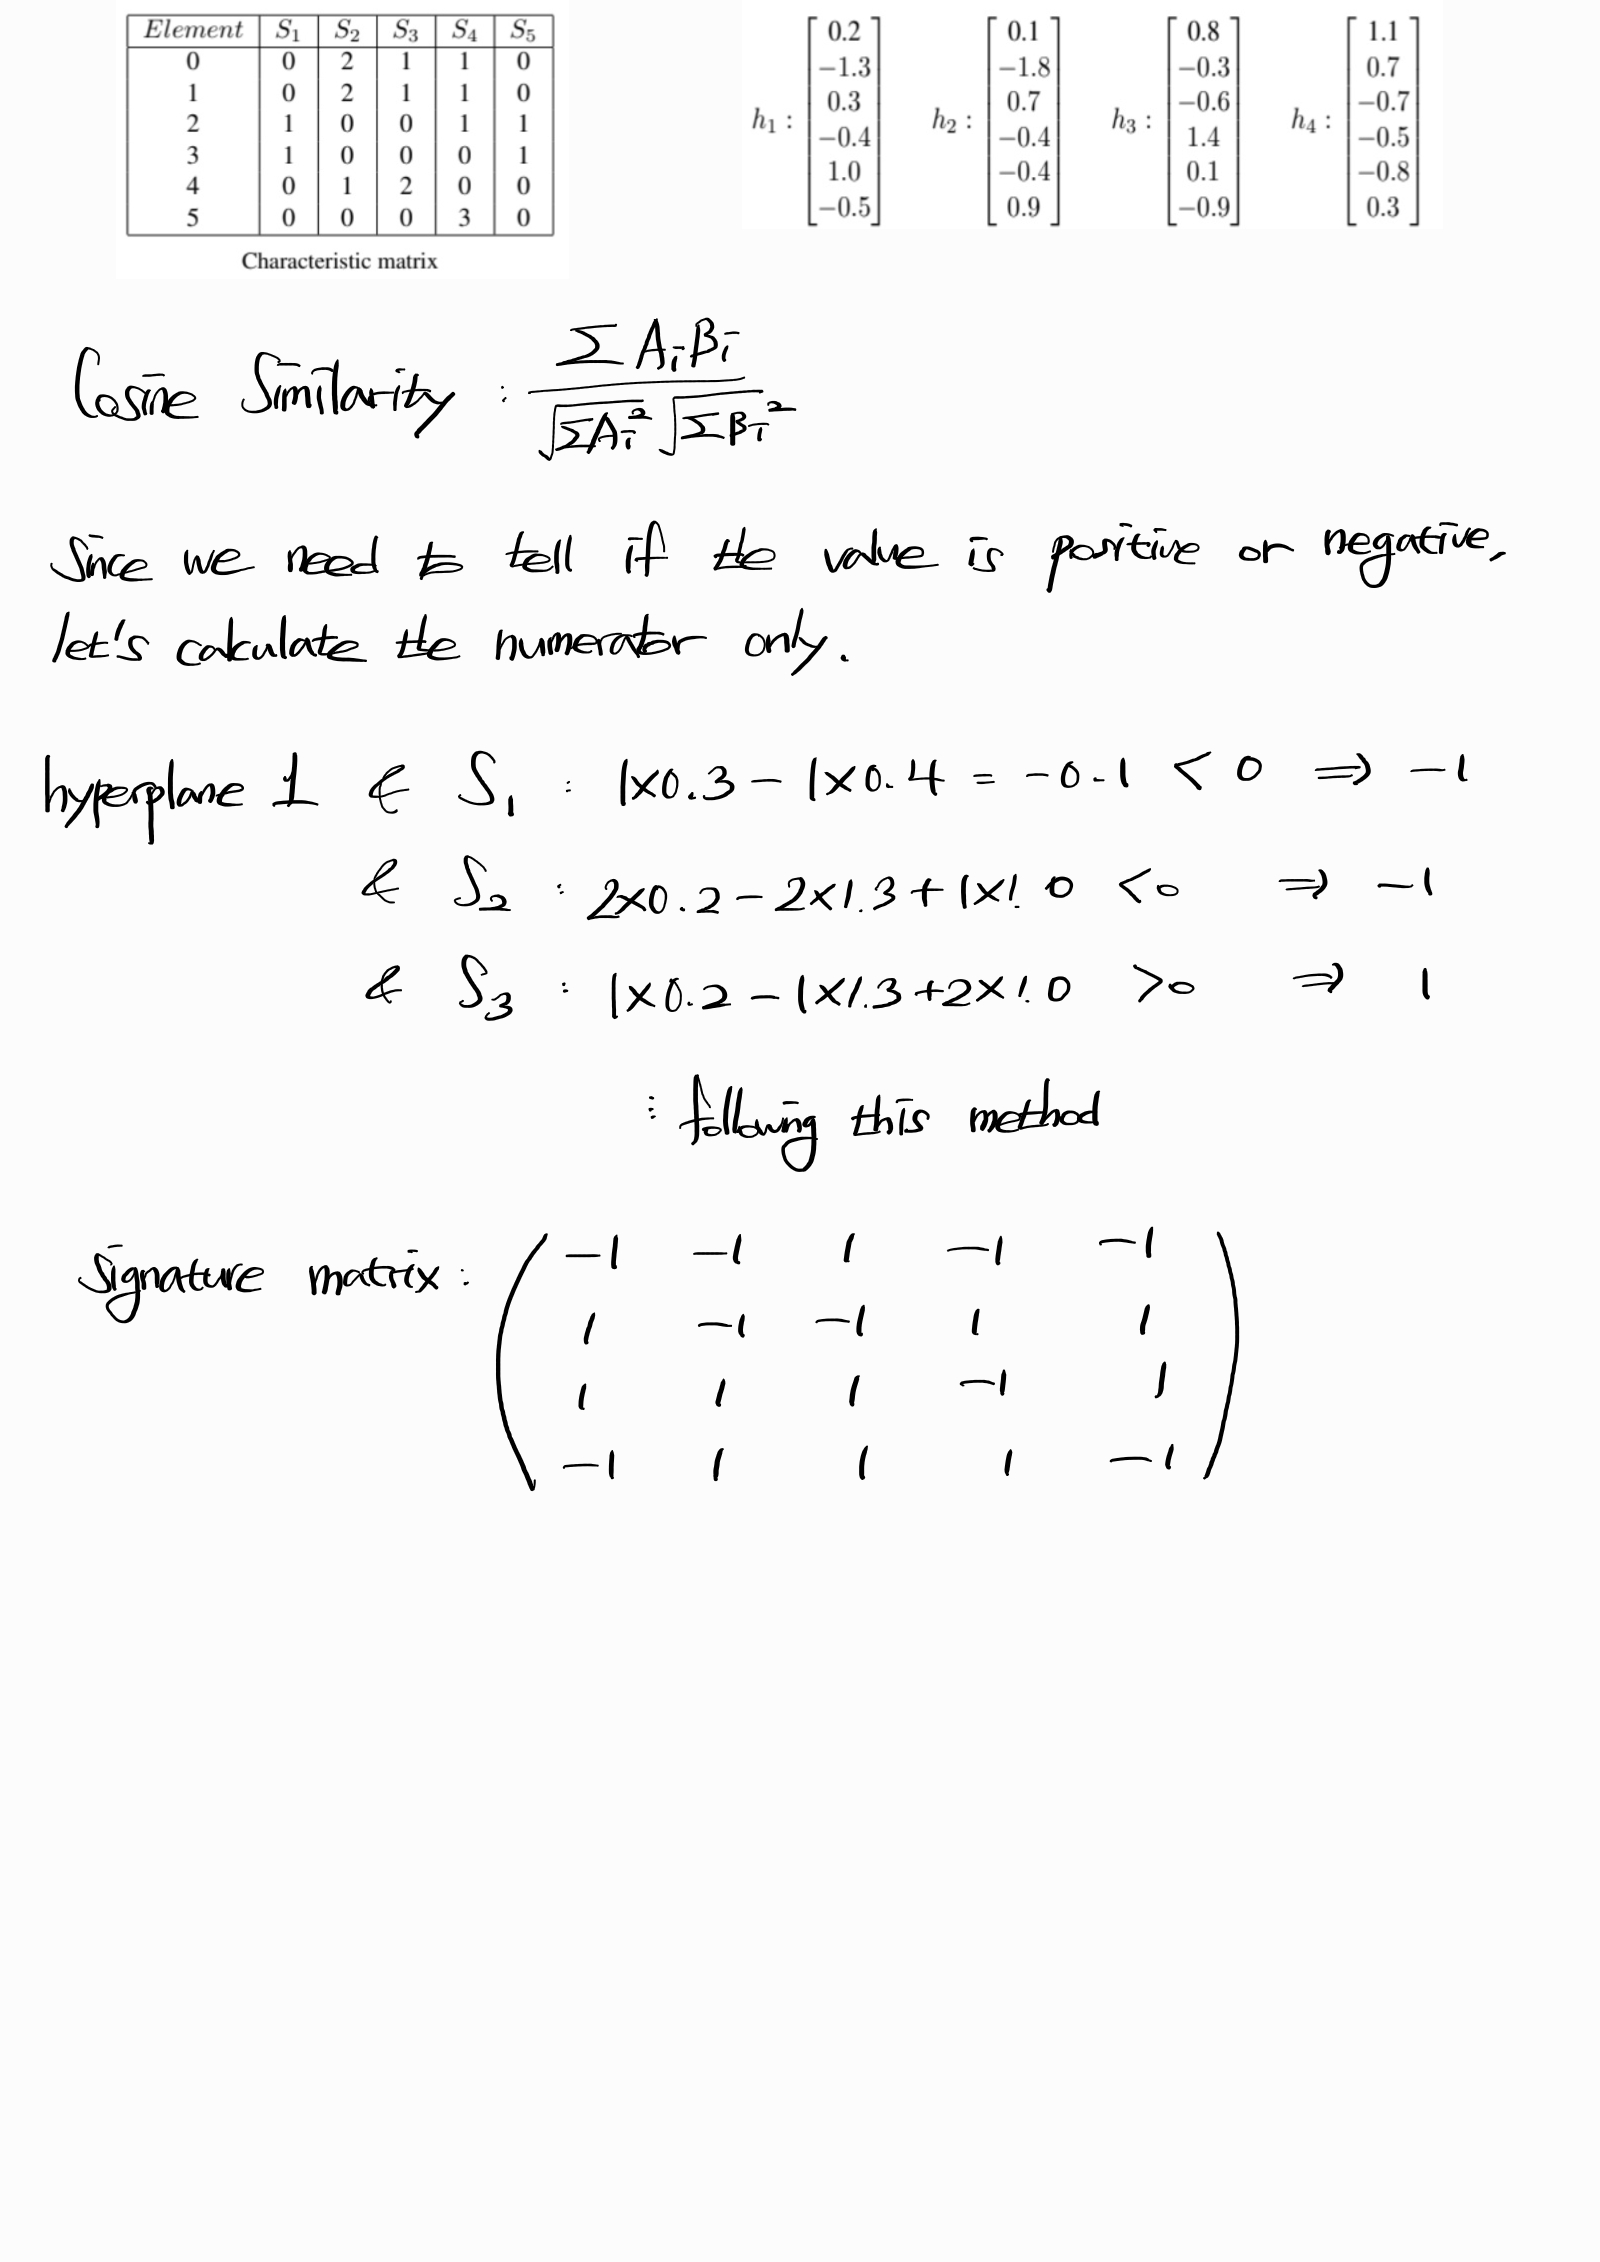 Element S₁ S₂ S₃ S₄ S₅
0 0 2 1 1 0
1 0 2 1 1 0
2 1 0 0 1 1
3 1 0 0 0 1
4 0 1 2 0 0
5 0 0 0 3 0
Characteristic matrix
h₁ : [0.2 −1.3 0.3 −0.4 1.0 −0.5]
h₂ : [0.1 −1.8 0.7 −0.4 −0.4 0.9]
h₃ : [0.8 −0.3 −0.6 1.4 0.1 −0.9]
h₄ : [1.1 0.7 −0.7 −0.5 −0.8 0.3]
Cosine Similarity : Σ AᵢBᵢ / √ΣAᵢ² √ΣBᵢ²
Since we need to tell if the value is positive or negative,
let's calculate the numerator only.
hyperplane 1 & S₁ : 1×0.3 − 1×0.4 = −0.1 < 0 ⇒ −1
& S₂ : 2×0.2 − 2×1.3 + 1×1.0 <0 ⇒ −1
& S₃ : 1×0.2 − 1×1.3 + 2×1.0 >0 ⇒ 1
⋮ following this method
Signature matrix :
−1 −1 1 −1 −1
1 −1 −1 1 1
1 1 1 −1 1
−1 1 1 1 −1